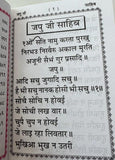 जपु जी
( १ )
साहिब
जपु जी साहिब
१ओं सति नामु करता पुरखु
निरभउ निरवैरु अकाल मूरति
अजूनी सैभं गुर प्रसादि॥
॥जपु॥
आदि सचु जुगादि सचु॥
है भी सचु नानक होसी भी सचु॥
सोचै सोचि न होवई
जे सोची लख वार॥
चुपै चुप न होवई
जे लाइ रहा लिव तार॥
भुखिआ भुख न उतरी